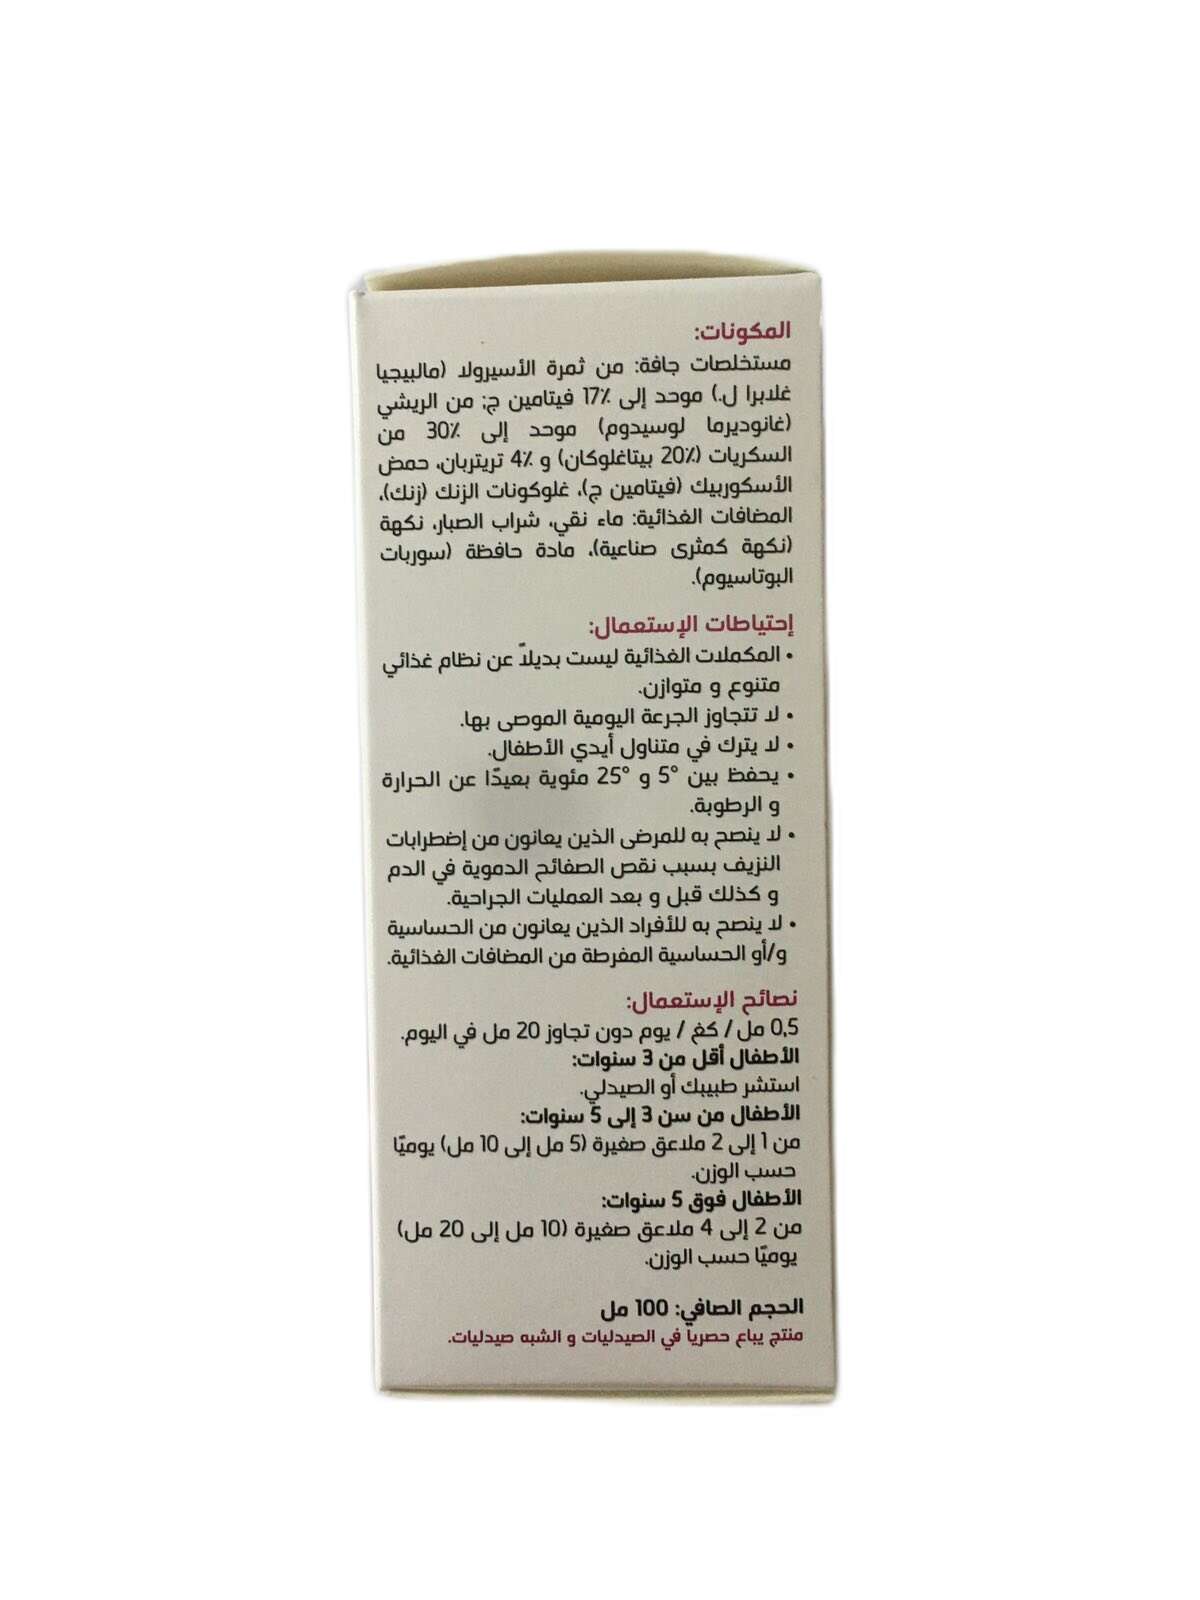 المكونات:
مستخلصات جافة: من ثمرة الأسيرولا (مالبيجيا
غلابرا ل.) موحد إلى 17٪ فيتامين ج; من الريشي
(غانوديرما لوسيدوم) موحد إلى 30٪ من
السكريات (20٪ بيتاغلوكان) و 4٪ تريتربان، حمض
الأسكوربيك (فيتامين ج)، غلوكونات الزنك (زنك)،
المضافات الغذائية: ماء نقي، شراب الصبار، نكهة
(نكهة كمثرى صناعية)، مادة حافظة (سوربات
البوتاسيوم).
إحتياطات الإستعمال:
• المكملات الغذائية ليست بديلاً عن نظام غذائي
متنوع و متوازن.
• لا تتجاوز الجرعة اليومية الموصى بها.
• لا يترك في متناول أيدي الأطفال.
• يحفظ بين 5° و 25° مئوية بعيدًا عن الحرارة
و الرطوبة.
• لا ينصح به للمرضى الذين يعانون من إضطرابات
النزيف بسبب نقص الصفائح الدموية في الدم
و كذلك قبل و بعد العمليات الجراحية.
• لا ينصح به للأفراد الذين يعانون من الحساسية
و/أو الحساسية المفرطة من المضافات الغذائية.
نصائح الإستعمال:
0,5 مل/ كغ / يوم دون تجاوز 20 مل في اليوم.
الأطفال أقل من 3 سنوات:
استشر طبيبك أو الصيدلي.
الأطفال من سن 3 إلى 5 سنوات:
من 1 إلى 2 ملاعق صغيرة (5 مل إلى 10 مل) يوميًا
حسب الوزن.
الأطفال فوق 5 سنوات:
من 2 إلى 4 ملاعق صغيرة (10 مل إلى 20 مل)
يوميًا حسب الوزن.
الحجم الصافي: 100 مل
منتج يباع حصريا في الصيدليات و الشبه صيدليات.